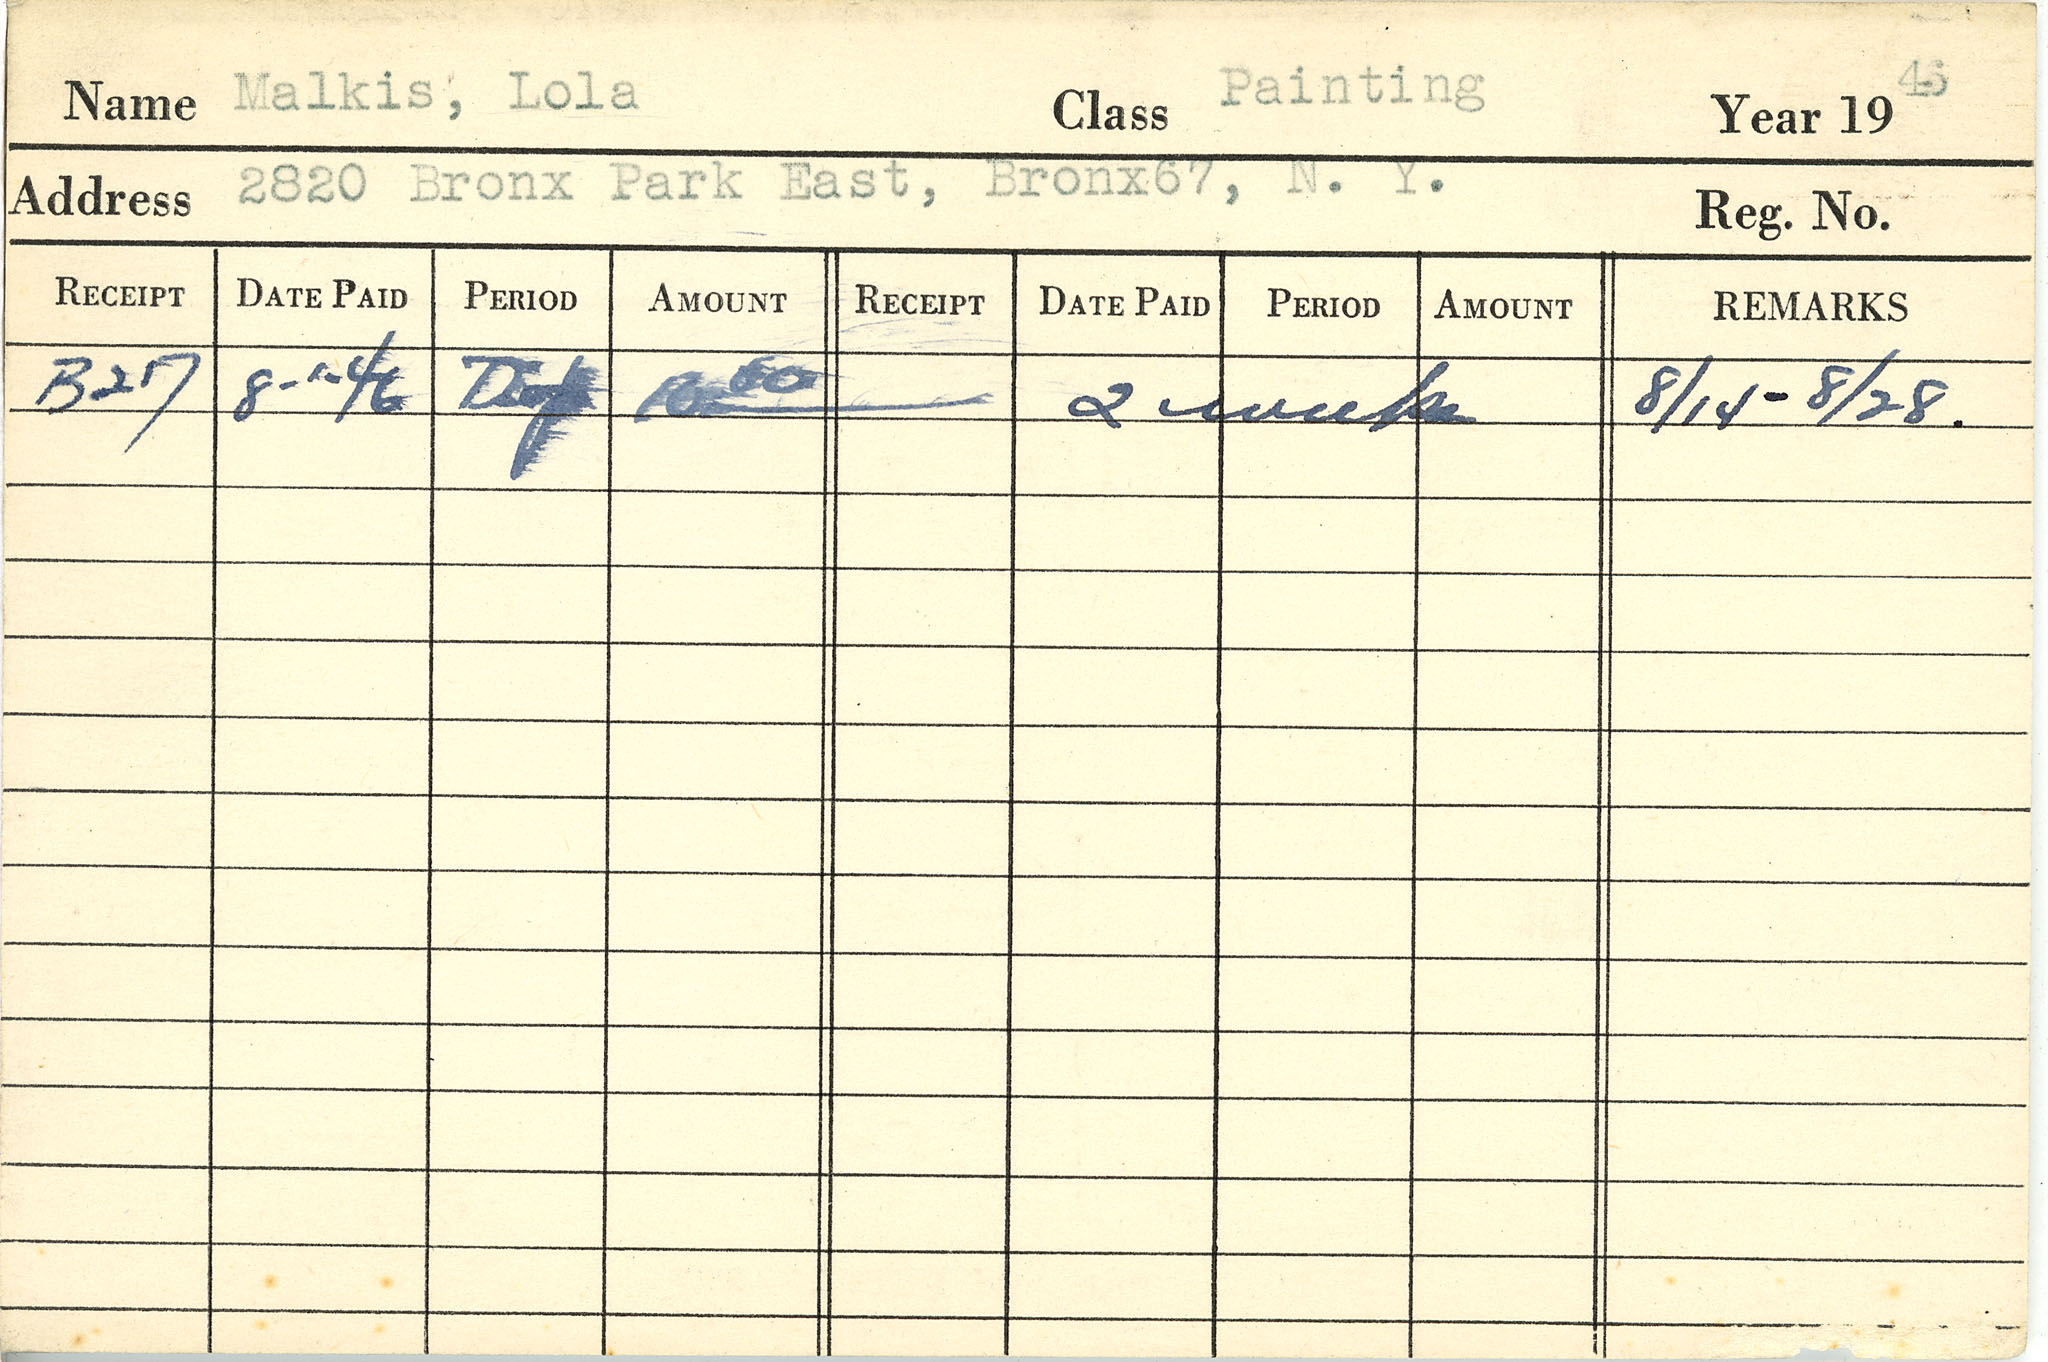 Name Malkis, Lola Class Painting Year 1946
Address 2820 Bronx Park East, Bronx67, N. Y. Reg. No.
RECEIPT DATE PAID PERIOD AMOUNT RECEIPT DATE PAID PERIOD AMOUNT REMARKS
B257 8-1-46 2 weeks 8/14 - 8/28.